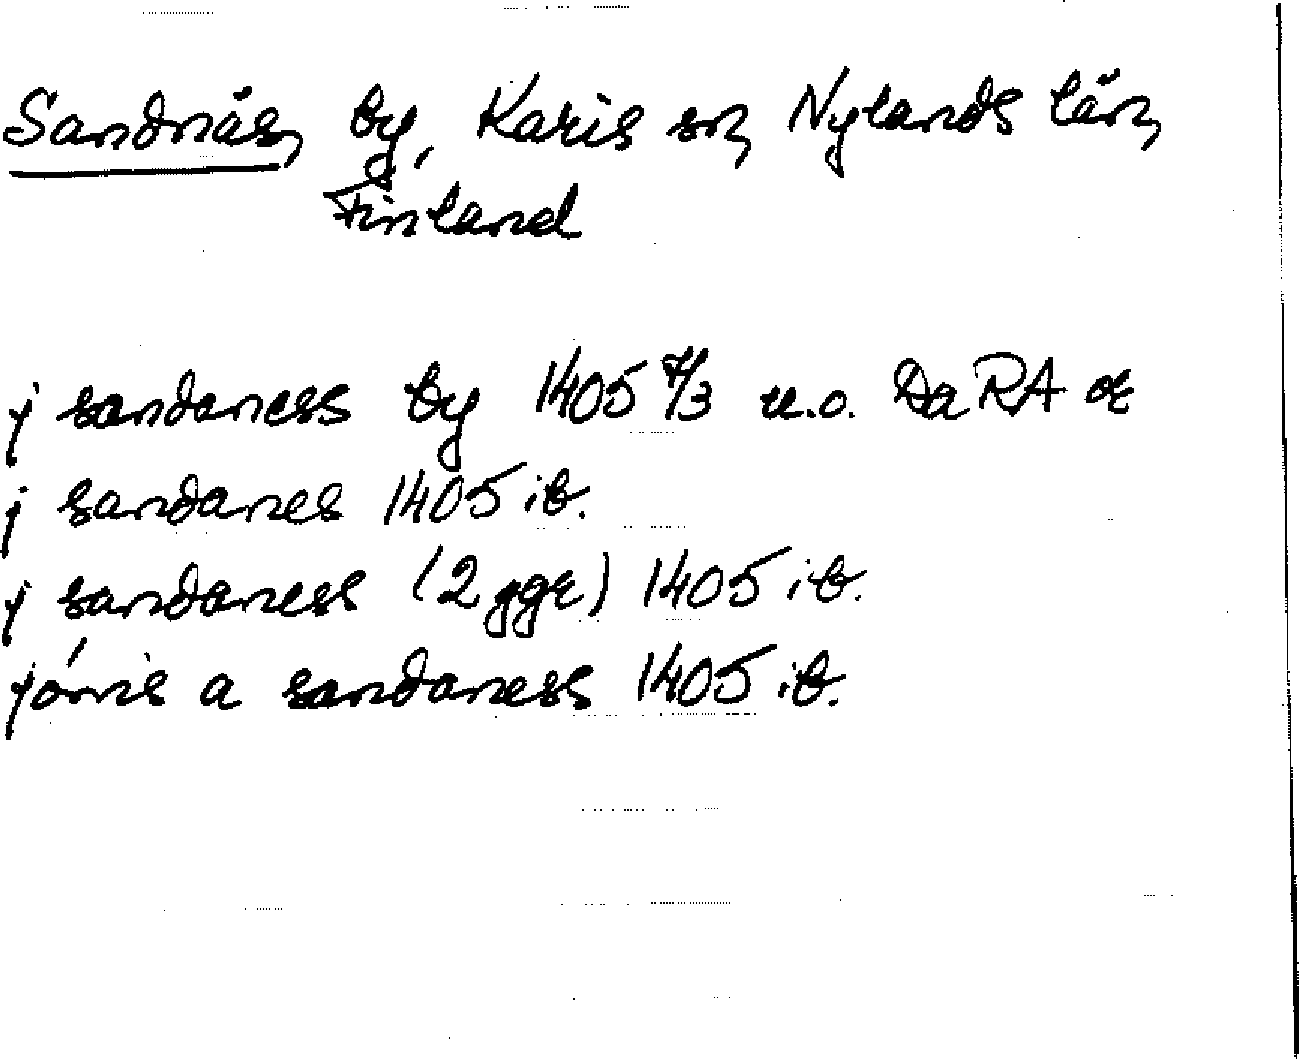 Sandnäs, by, Karis sn, Nylands län,
Finland
j sandaness by 1405 4/3 u.o. DaRA or
j sandanes 1405 ib.
j sandaness (2 ggr) 1405 ib.
jönis a sandaness 1405 ib.